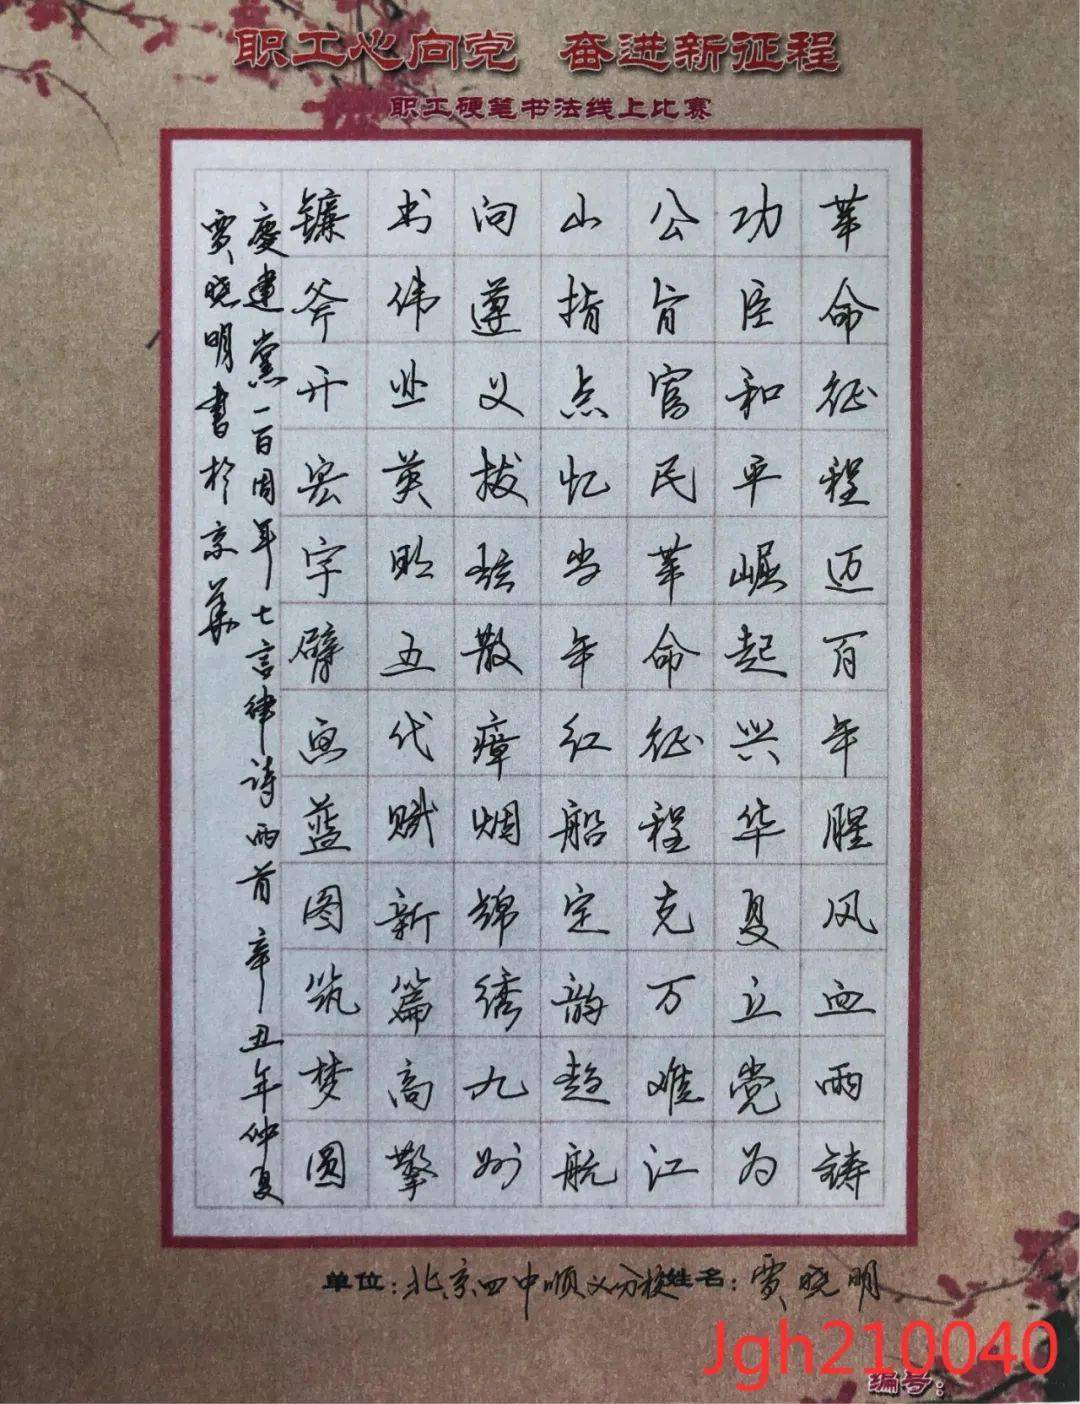 职工心向党 奋进新征程
职工硬笔书法线上比赛
革命征程迈百年腥风血雨铸
功臣和平崛起兴华夏立党为
公肯富民革命征程克万难江
山指点忆当年红船定韵起航
向遵义拔弦散瘴烟锦绣九州
书伟业英明五代赋新篇高擎
镰斧开宏宇擘画蓝图筑梦圆
慶建党一百周年七言律诗两首辛丑年仲夏
贾晓明書於京華
单位:北京四中顺义分校 姓名:贾晓明
Jgh210040
编号: